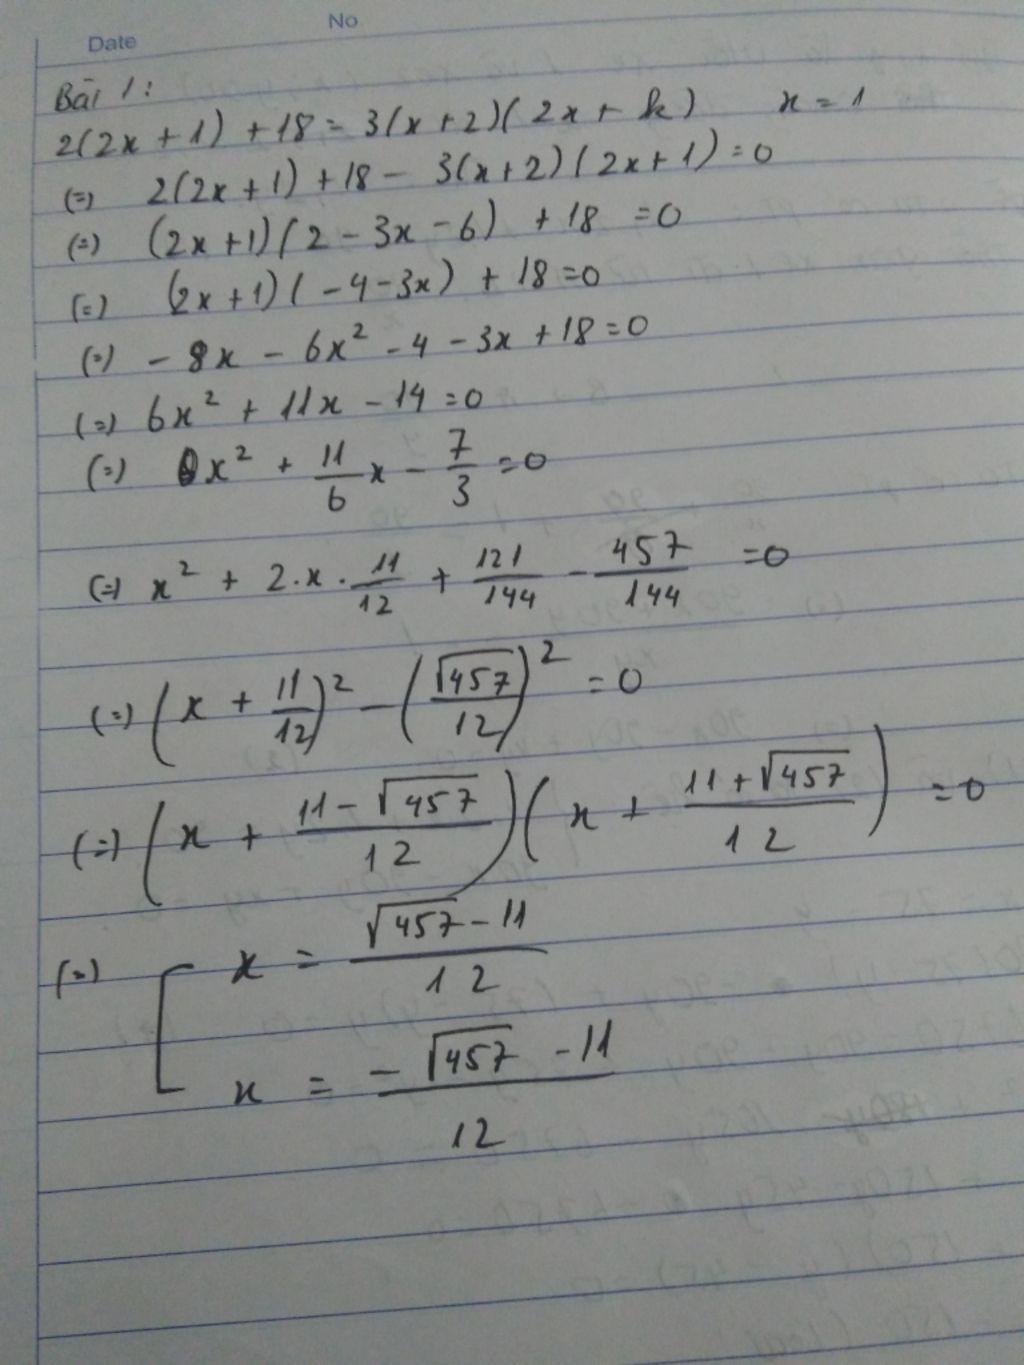 No
Date
Bài 1:
2(2x + 1) + 18 = 3(x + 2)(2x + k) x = 1
(=) 2(2x + 1) + 18 - 3(x + 2)(2x + 1) = 0
(=) (2x + 1)(2 - 3x - 6) + 18 = 0
(=) (2x + 1)(-4 - 3x) + 18 = 0
(=) - 8x - 6x² - 4 - 3x + 18 = 0
(=) 6x² + 11x - 14 = 0
(=) x² + 11/6 x - 7/3 = 0
(=) x² + 2·x·11/12 + 121/144 - 457/144 = 0
(=) (x + 11/12)² - (√457/12)² = 0
(=) (x + (11 - √457)/12)(x + (11 + √457)/12) = 0
(=) [ x = (√457 - 11)/12
x = (-√457 - 11)/12